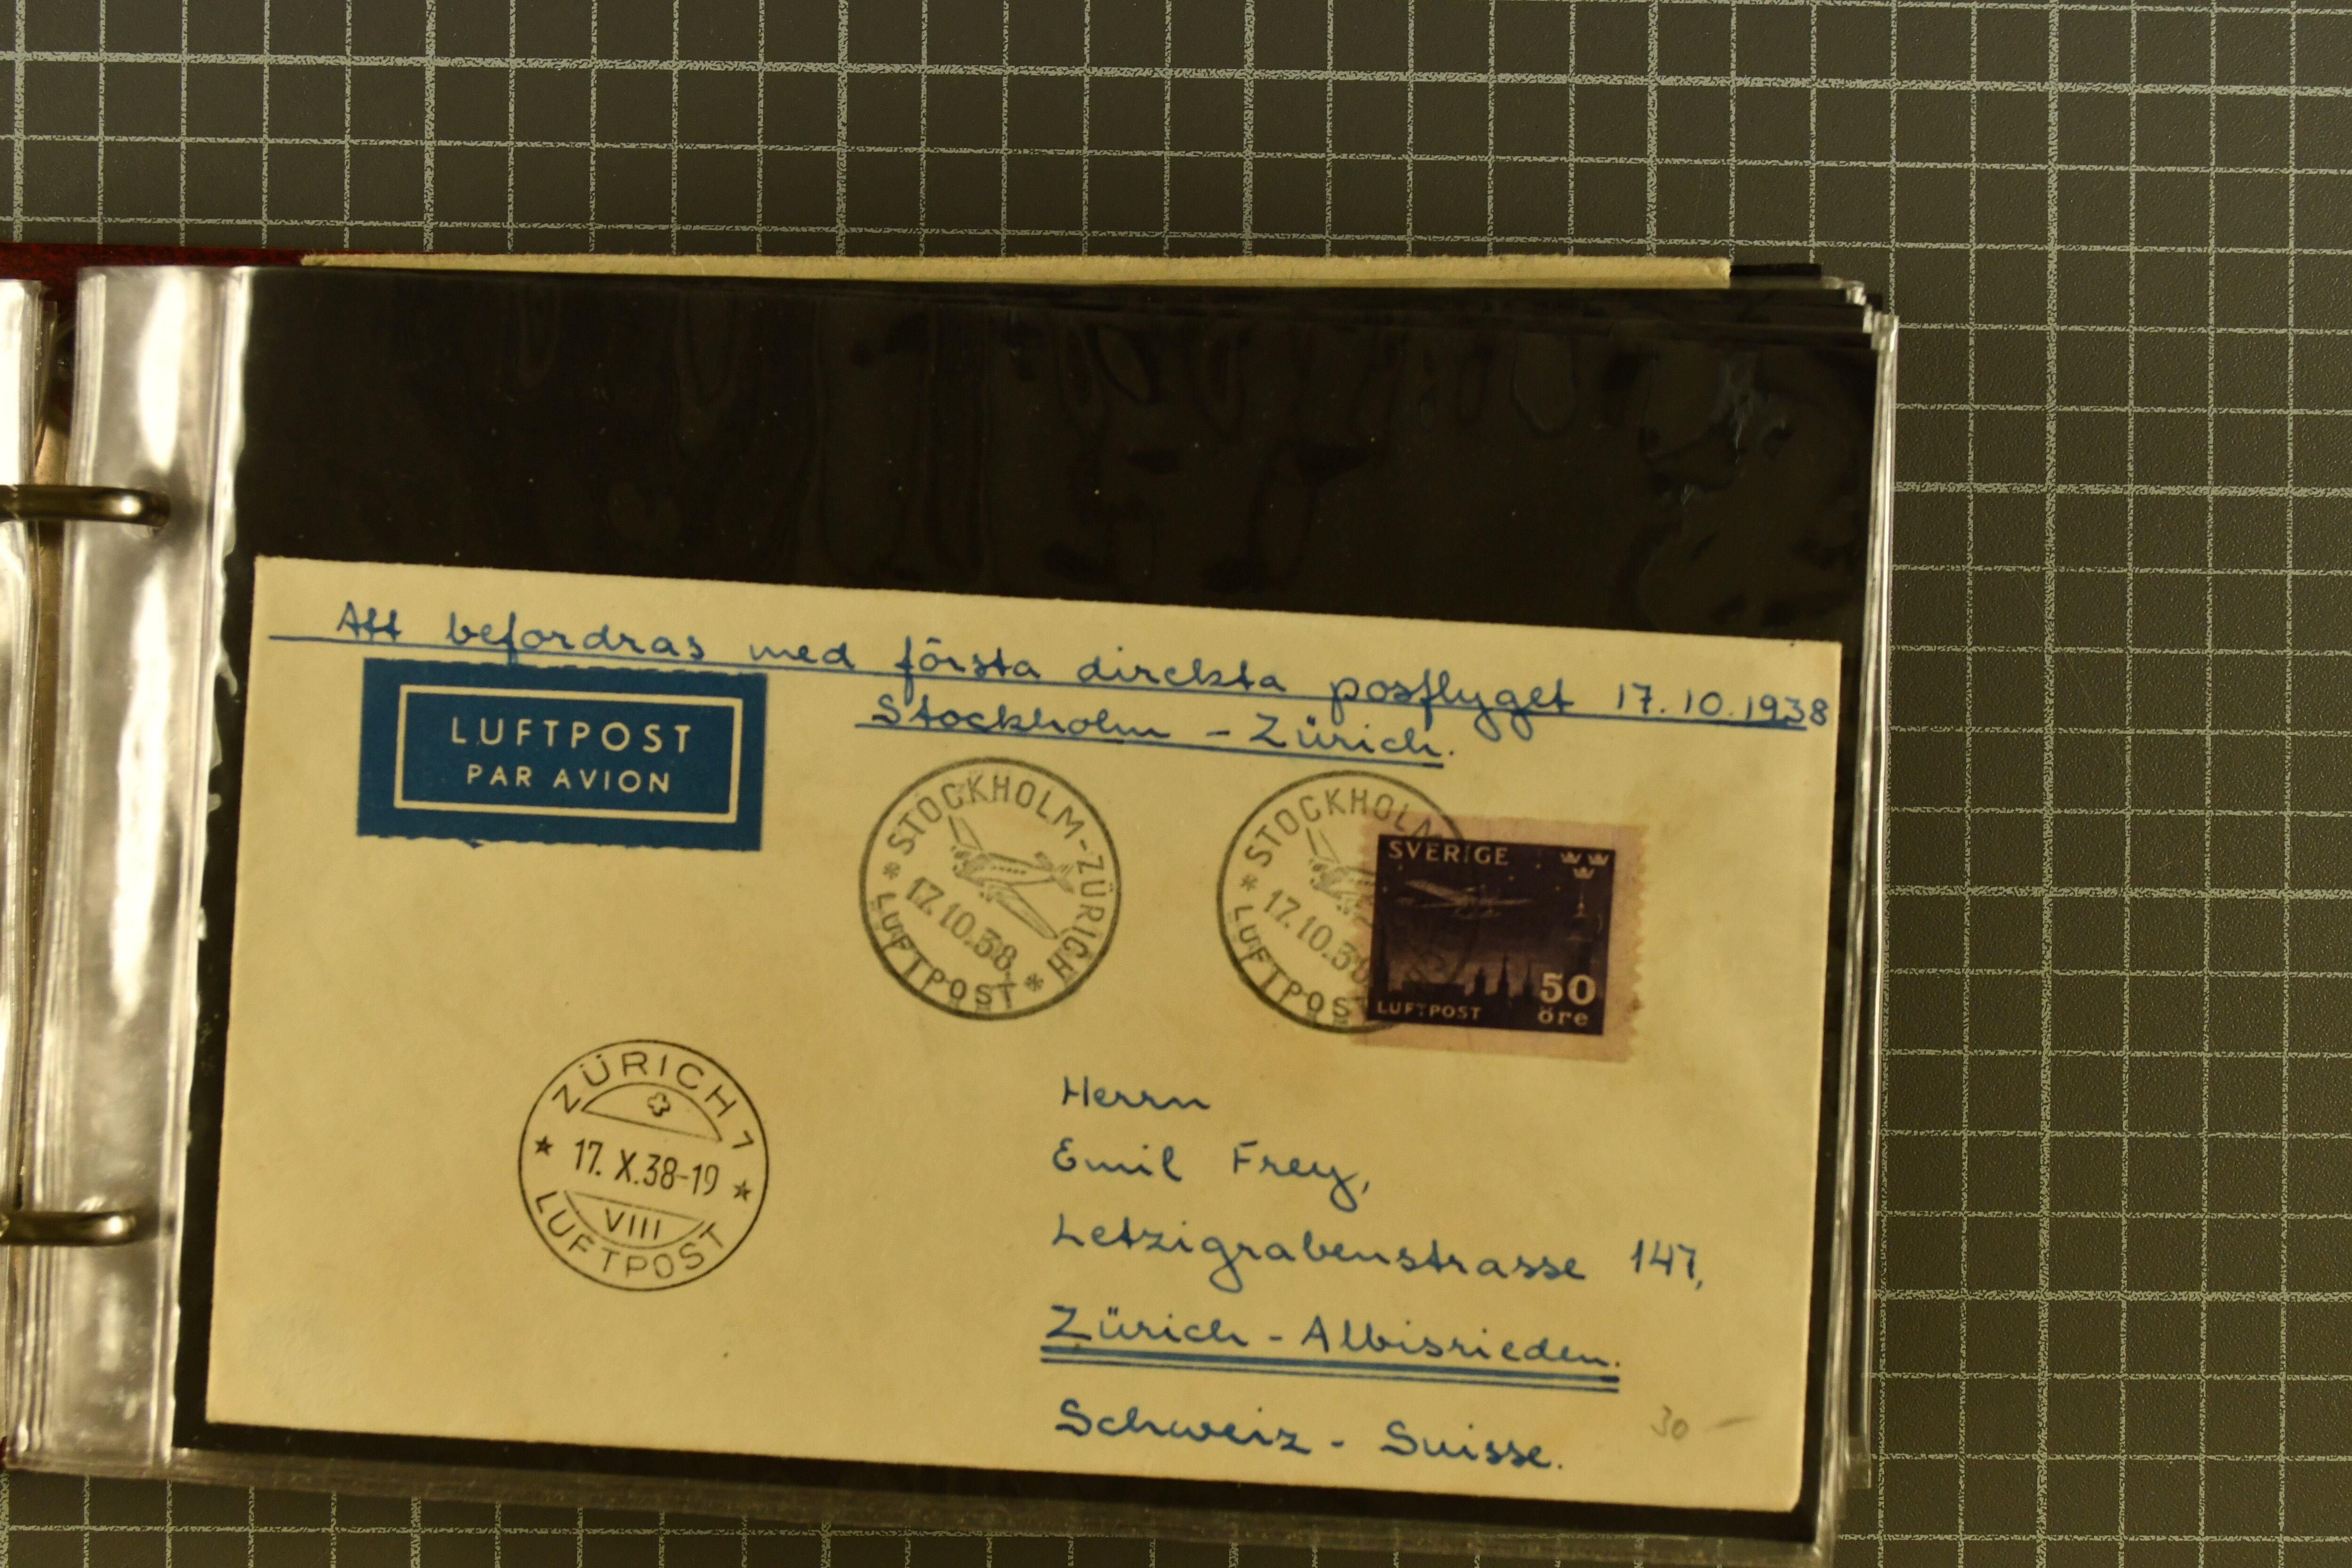 Att befordras med första direkta posflyget 17.10.1938
Stockholm - Zürich.
LUFTPOST
PAR AVION
STOCKHOLM-ZÜRICH
17.10.38
* LUFTPOST *
STOCKHOLM
17.10.38
* LUFTPOST
SVERIGE
50
öre
LUFTPOST
ZÜRICH 1
17. X.38-19
VIII
LUFTPOST
Herrn
Emil Frey,
Letzigrabenstrasse 147,
Zürich - Albisrieden.
Schweiz - Suisse.
30 -